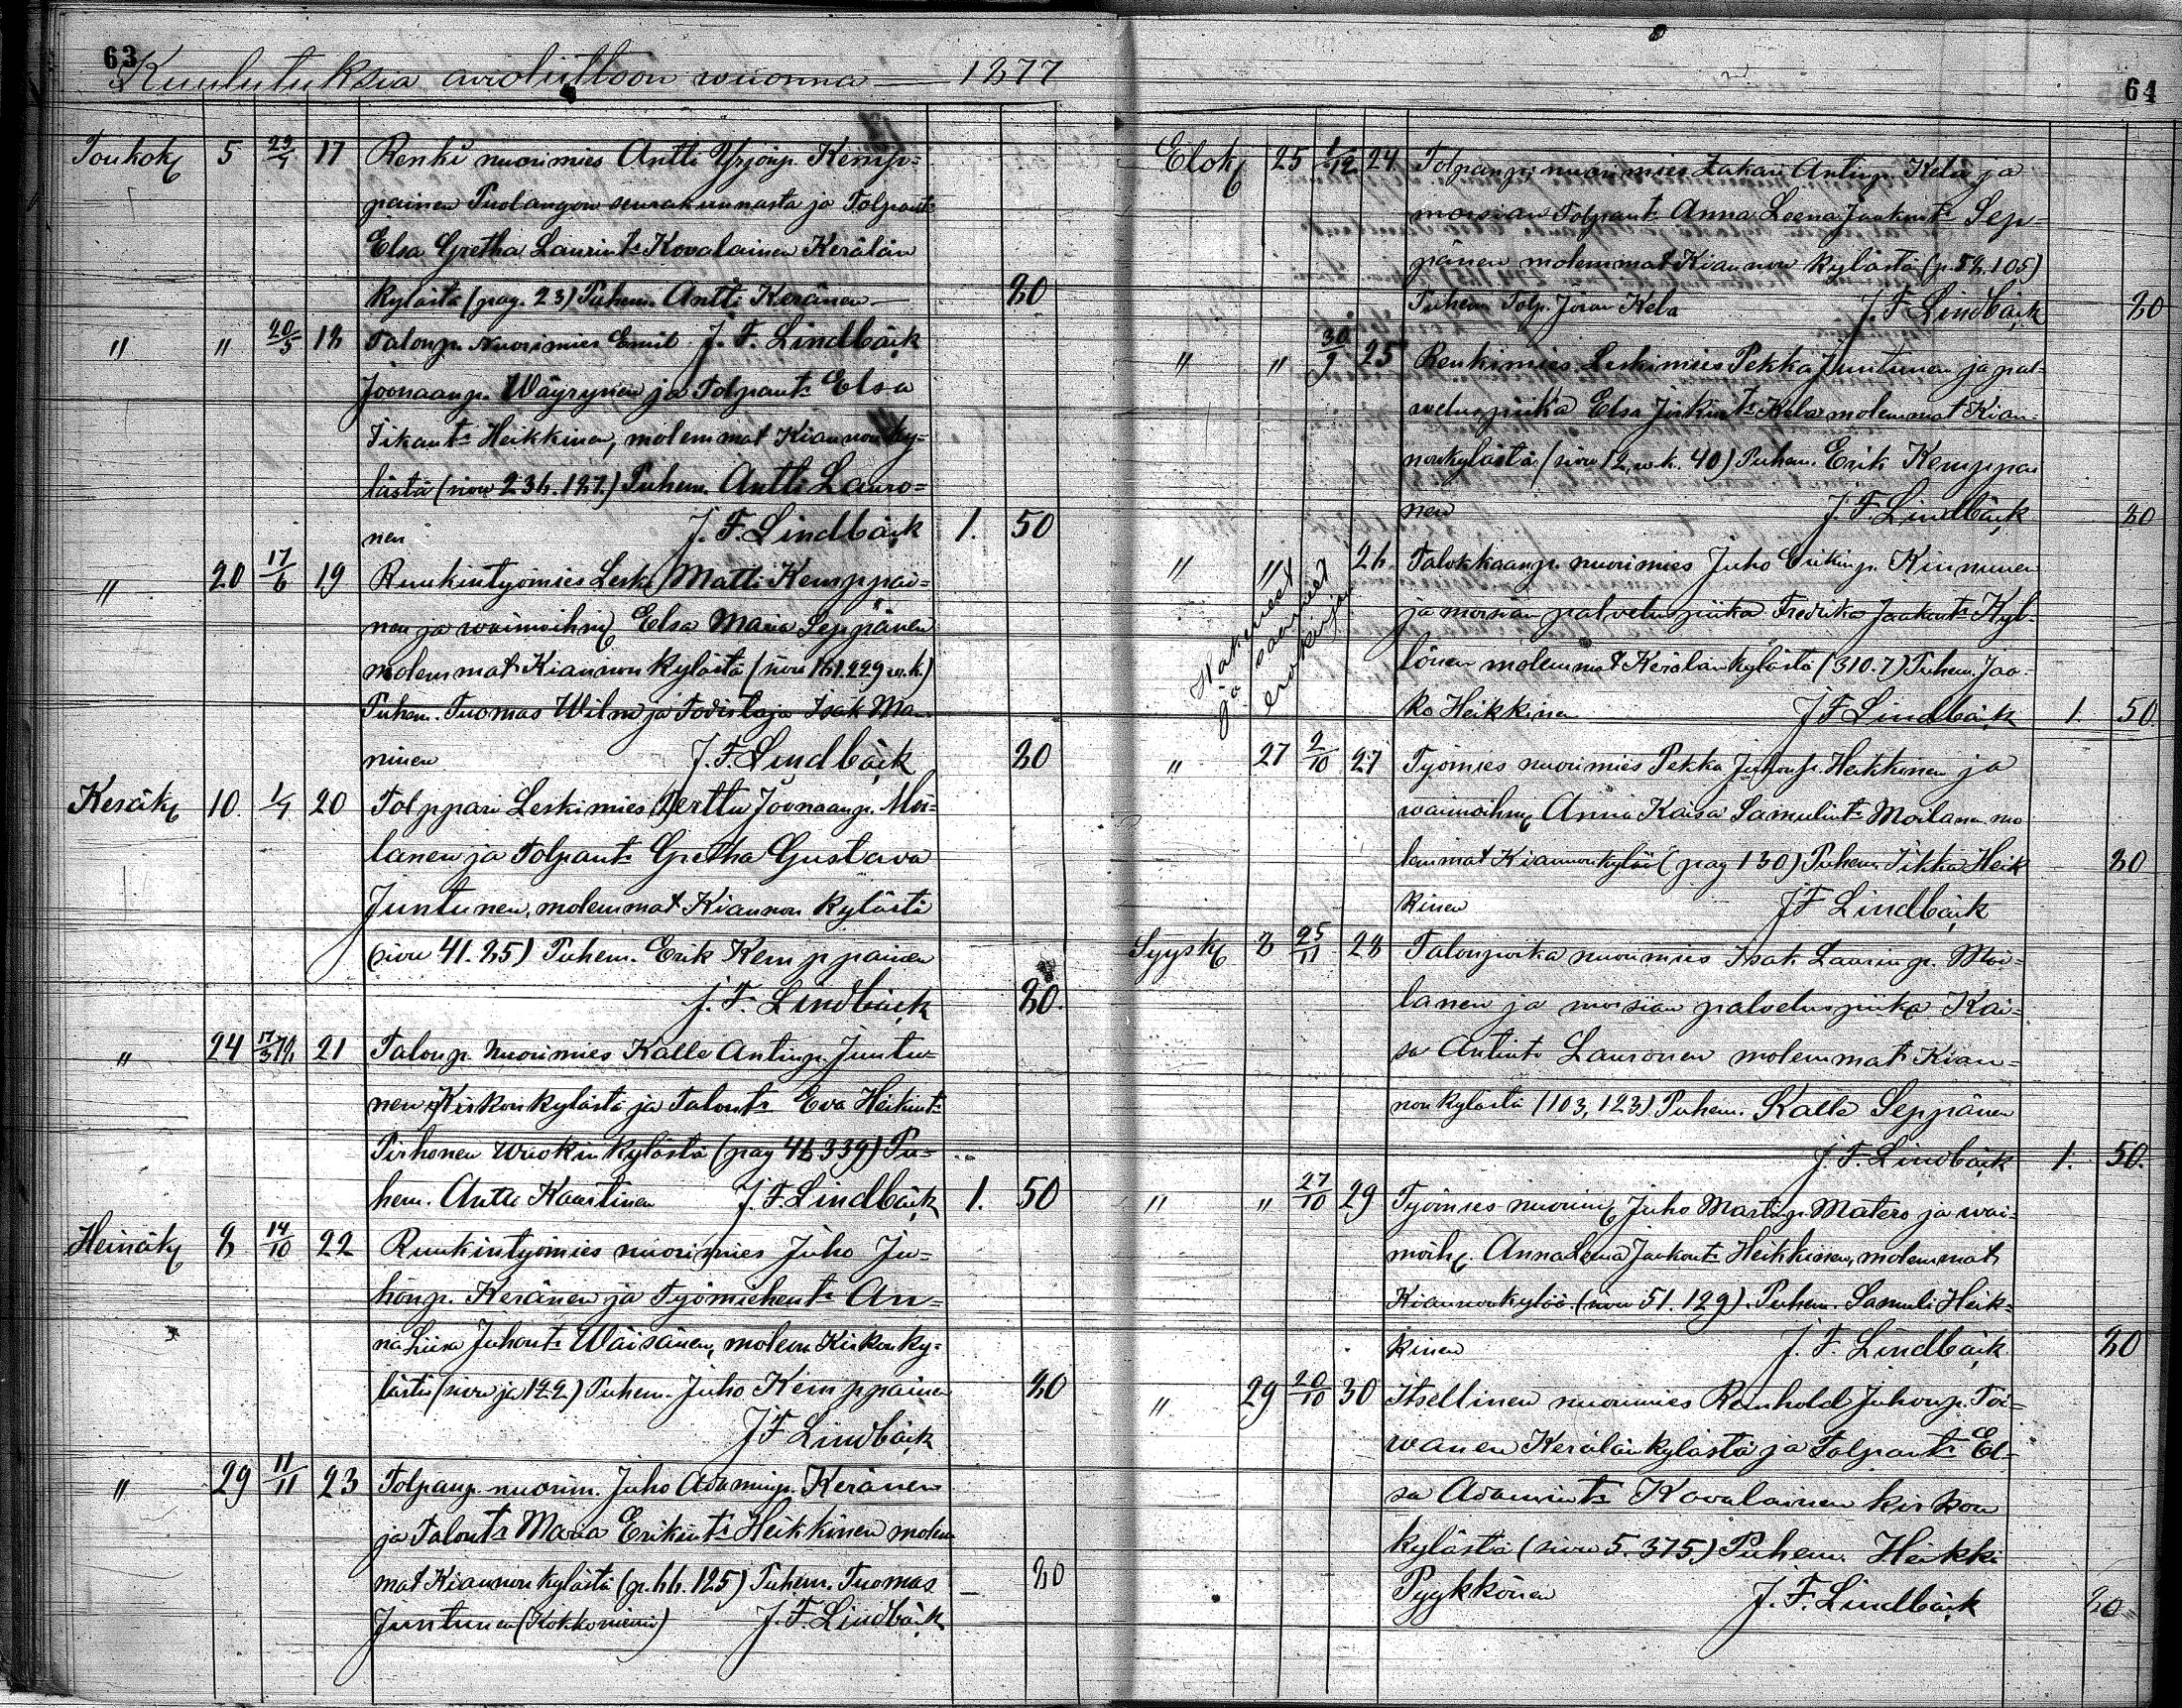 63
Kuulutuksia avioliittoon wuonna 1877
Toukok 5 29/7 17 Renki nuorimies Antti Yrjönp. Kemp=
painen Puolangon seurakunnasta ja Tolpant:
Elsa Gretha Laurint: Kovalainen Kerälän
kylästä (pag. 23) Puhem. Antti Keränen 80
" " 20/5 18 Talonp. Nuorimies Emil J. F. Lindbäck
Joonaanp. Wäyrynen ja Tolpant: Elsa
Iikant: Heikkinen, molemmat Kiannon ky=
lästä (sivu 236. 187.) Puhem. Antti Lauro=
nen J. F. Lindbäck 1. 50
" 20 17/6 19 Ruukintyömies Leski Matti Kemppai=
nen ja waimoihm Elsa Maria Seppänen
molemmat Kiannon kylästä (sivu 161.229 w.k.)
Puhem. Tuomas Wilm ja Todistaja Isak Man
ninen J. F. Lindbäck 80
Kesäk 10. 1/7 20 Tolppari Leskimies Perttu Joonaanp. Moi=
lanen ja Tolpant: Gretha Gustava
Juntunen, molemmat Kiannon kylästä
(sivu 41. 85) Puhem. Erik Kemppainen
J. F. Lindbäck 80.
" 24 21 Talonp. Nuorimies Kalle Antinp. Juntu=
nen Kirkonkylästä ja Talont: Eva Heikint:
Pirhonen Wuokin kylästä (pag 46 339) Pu=
hem. Antti Kaartinen J. F. Lindbäck 1. 50
Heinäk 8 14/10 22 Ruukintyömies nuorimies Juho Ju=
honp. Keränen ja Työmiehent: An=
na Liisa Juhont: Wäisänen, molem Kirkonky=
lästä (sivu ja 122) Puhem. Juho Kemppainen 80
J F Lindbäck
" 29 11/11 23 Tolpanp. nuorim. Juho Adaminp. Keränen
ja Talont: Maria Erikint: Heikkinen molem
mat Kiannon kylästä (p. 66. 125) Puhem. Tuomas 80
Juntunen (Kokkoniemi) J. F. Lindbäck
64
Elok 25 1/12 24 Tolpanp. nuorimies Zakari Antinp. Kela ja
morsian Tolpant: Anna Leena Jaakont: Sep=
pänen molemmat Kiannon kylästä (p. 52. 105)
Puhem Tolp. Joran Kela J. F. Lindbäck 80
" " 30/9 25 Renkimies Leskimies Pekka Juntunen ja pal=
weluspiika Elsa Kela molemmat Kian=
nonkylästä (sivu 12, w.k. 40) Puhem. Erik Kemppai
nen J. F. Lindbäck 80
" " 26. Talokkaanp. nuorimies Juho Erikinp. Kinnunen
ja morsian palveluspiika Fredrika Jaakont: Kyl=
lönen molemmat Kerälänkylästä (310. 7) Puhem. Jaa=
ko Heikkinen J F Lindbäck 1. 50
Hakeneet
ja saaneet
erokirjan
" 27 2/10 27 Työmies nuorimies Pekka Juhonp. Heikkinen ja
waimoihm Anna Kaisa Samulint: Moilanen mo
lemmat Kiannonkylää (pag 130) Puhem. Iikka Heik 80
kinen J F Lindbäck
Syysk 8 25/11 28 Talonpoika nuorimies Isak Laurinp. Moi=
lanen ja morsian palveluspiika Kai=
sa Antint: Lauronen molemmat Kian=
nonkylästä (103, 123) Puhem. Kalle Seppänen
J. F. Lindbäck 1. 50.
" " 27/10 29 Työmies nuorim Juho Martinp. Matero ja wai=
moih. Anna Leena Jaakont: Heikkinen, molemmat
Kiannonkylää (sivu 51. 129) Puhem. Samuli Heik=
kinen J. F. Lindbäck 80
" 29 20/10 30 Itsellinen nuorimies Reinhold Juhonp. Toi=
wanen Kerälän kylästä ja Tolpant: El=
sa Adamint: Kovalainen kirkon
kylästä (sivu 5. 375) Puhem. Heikki
Pyykkönen J. F. Lindbäck 80